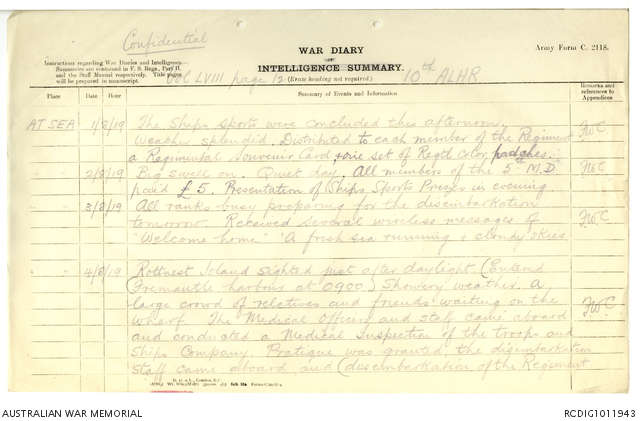 Confidential
Army Form C. 2118.
WAR DIARY
or
INTELLIGENCE SUMMARY.
(Erase heading not required.)
Instructions regarding War Diaries and Intelligence
Summaries are contained in F. S. Regs., Part II.
and the Staff Manual respectively. Title pages
will be prepared in manuscript.
Vol LVIII page 12
10th ALHR
Place Date Hour Summary of Events and Information Remarks and references to Appendices
AT SEA 1/8/19 The Ships Sports were concluded this afternoon. FWC
Weather splendid. Distributed to each member of the Regiment
a Regimental Souvenir Card, + one set of Regtl Color patches.
" 2/8/19 Big swell on. Quiet day. All members of the 5th M.D. FWC
paid £5. Presentation of Ships Sports Prizes in evening.
" 3/8/19 All ranks busy preparing for the disembarkation FWC
tomorrow. Received several wireless messages of
"Welcome home" A fresh sea running & cloudy skies
" 4/8/19 Rottnest Island sighted just after daylight (Entered
Fremantle harbour at 0900.) Showery weather. A
large crowd of relatives and friends waiting on the FWC
wharf. The Medical Officer and staff came aboard
and conducted a Medical Inspection of the troops and
Ships Company. Pratique was granted, the disembarkation
staff came aboard and (disembarkation of the Regiment
AUSTRALIAN WAR MEMORIAL
RCDIG1011943